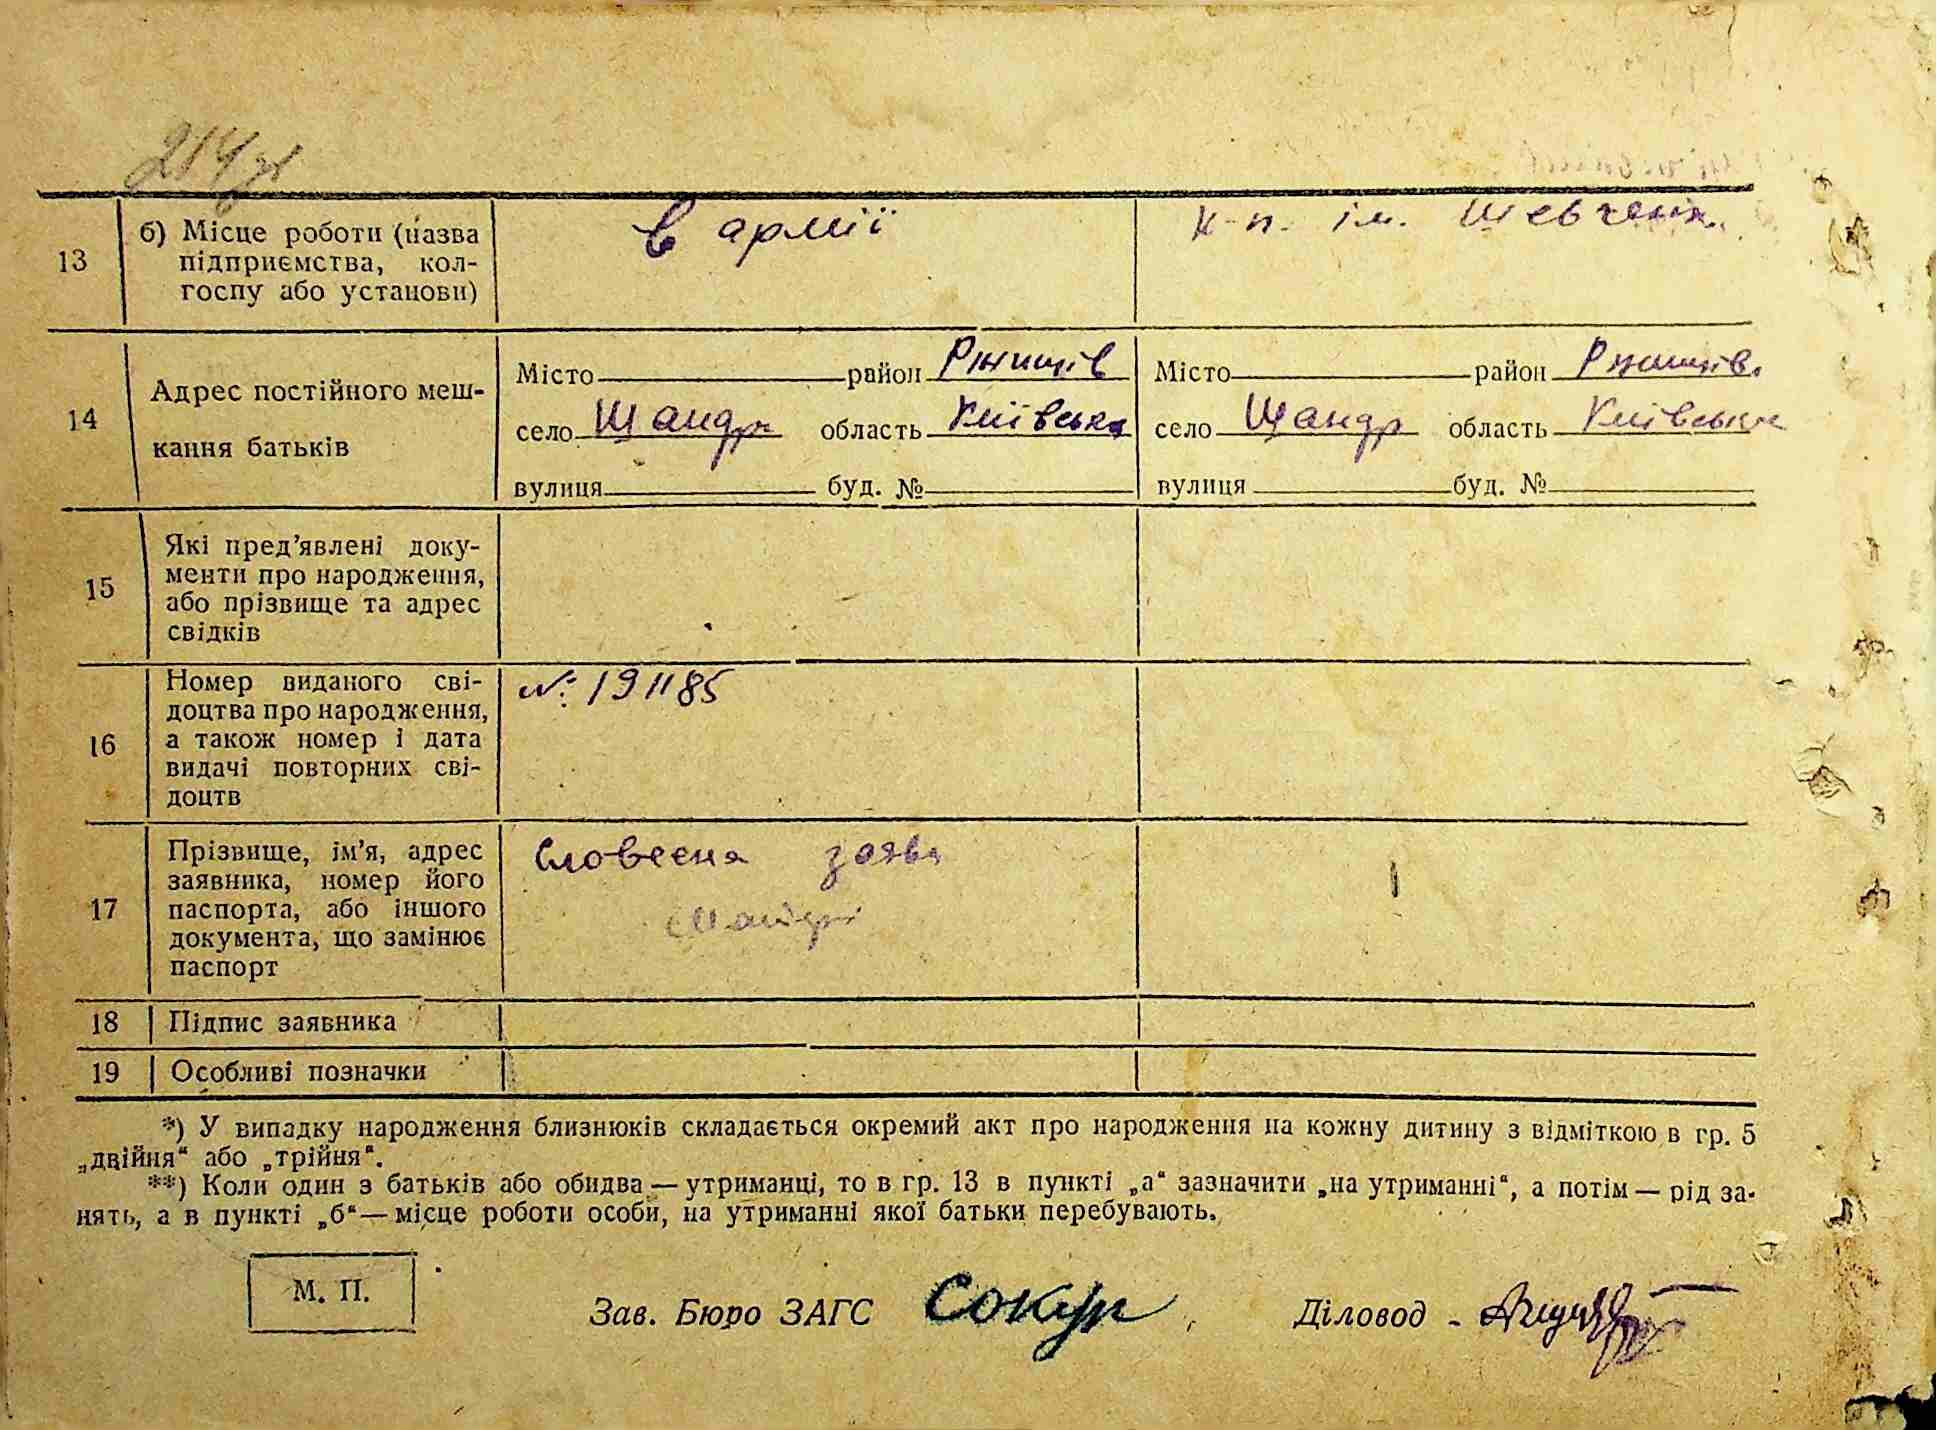 214
13
б) Місце роботи (назва
підприємства, кол-
госпу або установи)
в армії
к-п. ім. Шевченк.
14
Адрес постійного меш-
кання батьків
Місто район Ржищів
село Щандр область Київська
вулиця буд. №
Місто район Ржищів.
село Щандр область Київська
вулиця буд. №
15
Які пред’явлені доку-
менти про народження,
або прізвище та адрес
свідків
16
Номер виданого сві-
доцтва про народження,
а також номер і дата
видачі повторних сві-
доцтв
№ 191185
17
Прізвище, ім’я, адрес
заявника, номер його
паспорта, або іншого
документа, що замінює
паспорт
Словесна заява
матері
18 Підпис заявника
19 Особливі позначки
*) У випадку народження близнюків складається окремий акт про народження на кожну дитину з відміткою в гр. 5
„двійня“ або „трійня“.
**) Коли один з батьків або обидва — утриманці, то в гр. 13 в пункті „а“ зазначити „на утриманні“, а потім — рід за-
нять, а в пункті „б“ — місце роботи особи, на утриманні якої батьки перебувають.
М. П.
Зав. Бюро ЗАГС Сокур
Діловод -